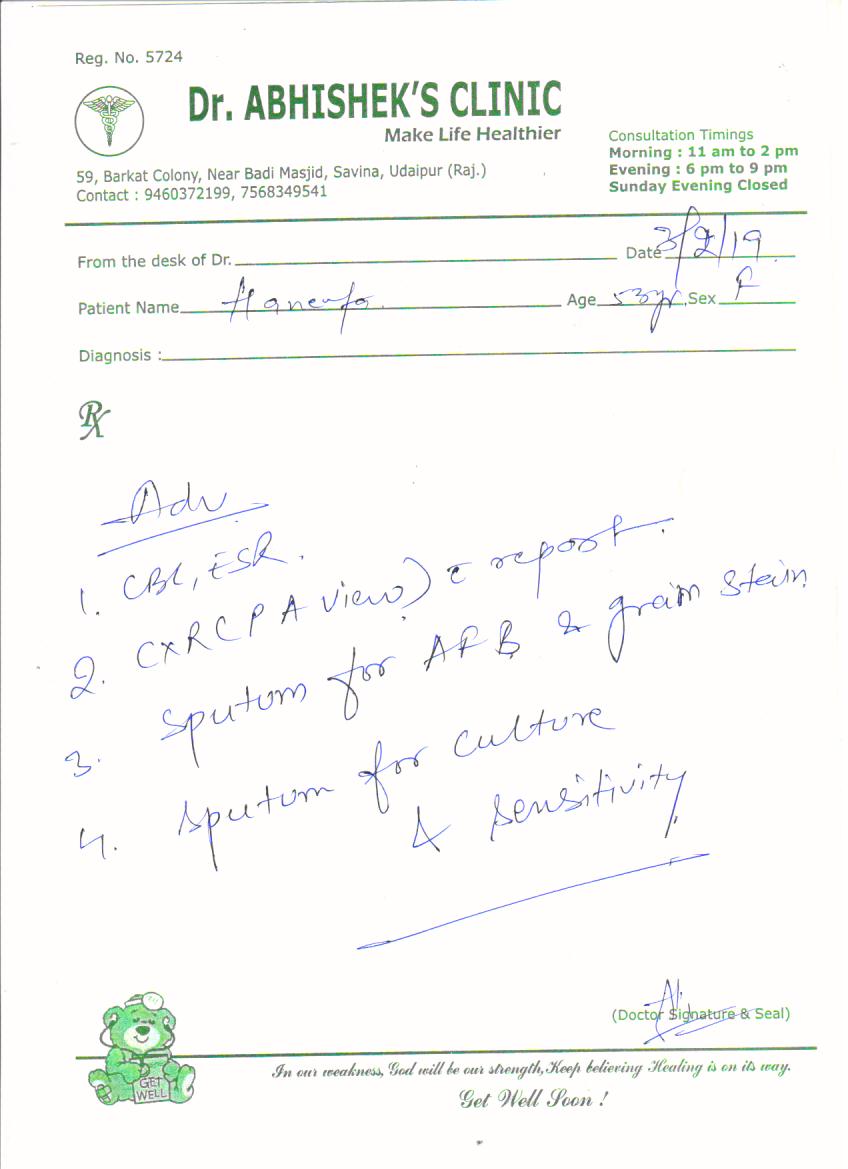 Reg. No. 5724
Dr. ABHISHEK'S CLINIC
Make Life Healthier
59, Barkat Colony, Near Badi Masjid, Savina, Udaipur (Raj.)
Contact : 9460372199, 7568349541
Consultation Timings
Morning : 11 am to 2 pm
Evening : 6 pm to 9 pm
Sunday Evening Closed
From the desk of Dr. Date 3/2/19
Patient Name Haneefa Age 53yr, Sex F
Diagnosis :
Rx
Adv
1. CBC, ESR.
2. CXR (PA view) c report.
3. Sputum for AFB & gram stain
4. Sputum for culture
& sensitivity
(Doctor Signature & Seal)
GET
WELL
In our weakness, God will be our strength, Keep believing Healing is on its way.
Get Well Soon !